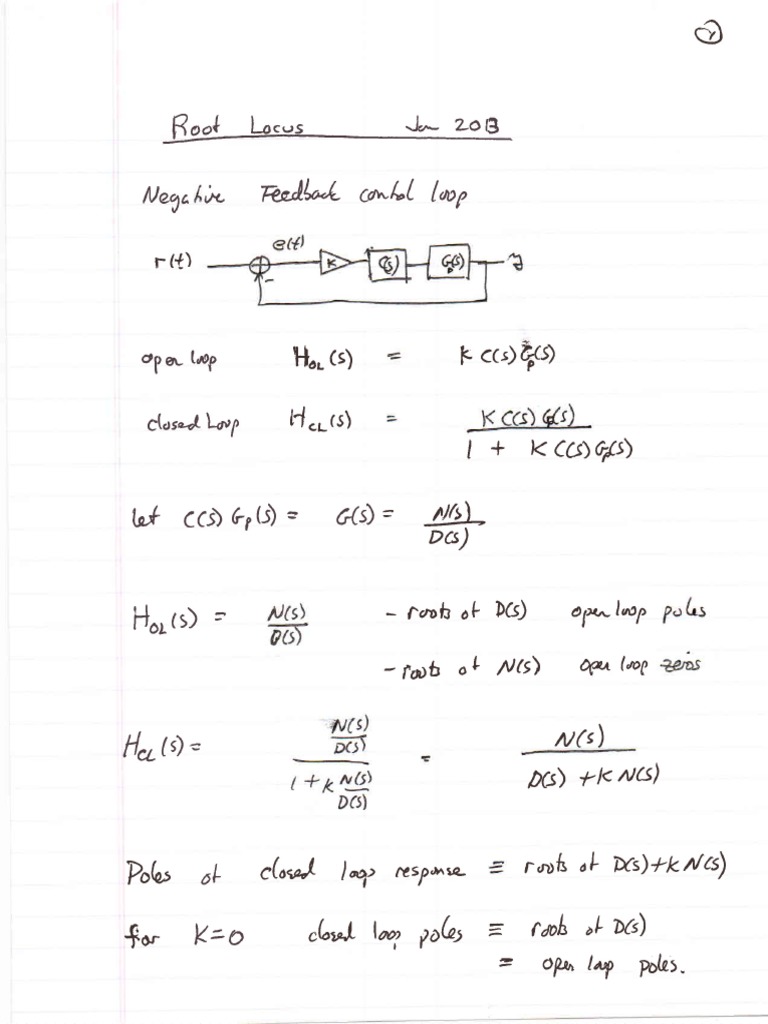 2
Root Locus Jan 2013
Negative Feedback control loop
r(t) e(t) - K C(s) Gp(s) y
open loop HOL(s) = K C(s) Gp(s)
closed Loop HCL(s) = K C(s) Gp(s) / 1 + K C(s) Gp(s)
let C(s) Gp(s) = G(s) = N(s) / D(s)
HOL(s) = N(s) / D(s) - roots of D(s) open loop poles
- roots of N(s) open loop zeros
HCL(s) = N(s)/D(s) / 1 + K N(s)/D(s) = N(s) / D(s) + K N(s)
Poles of closed loop response ≡ roots of D(s) + K N(s)
for K=0 closed loop poles ≡ roots of D(s)
= open loop poles.